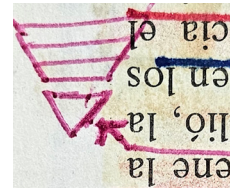 ene la
lió, la
en los
cia el